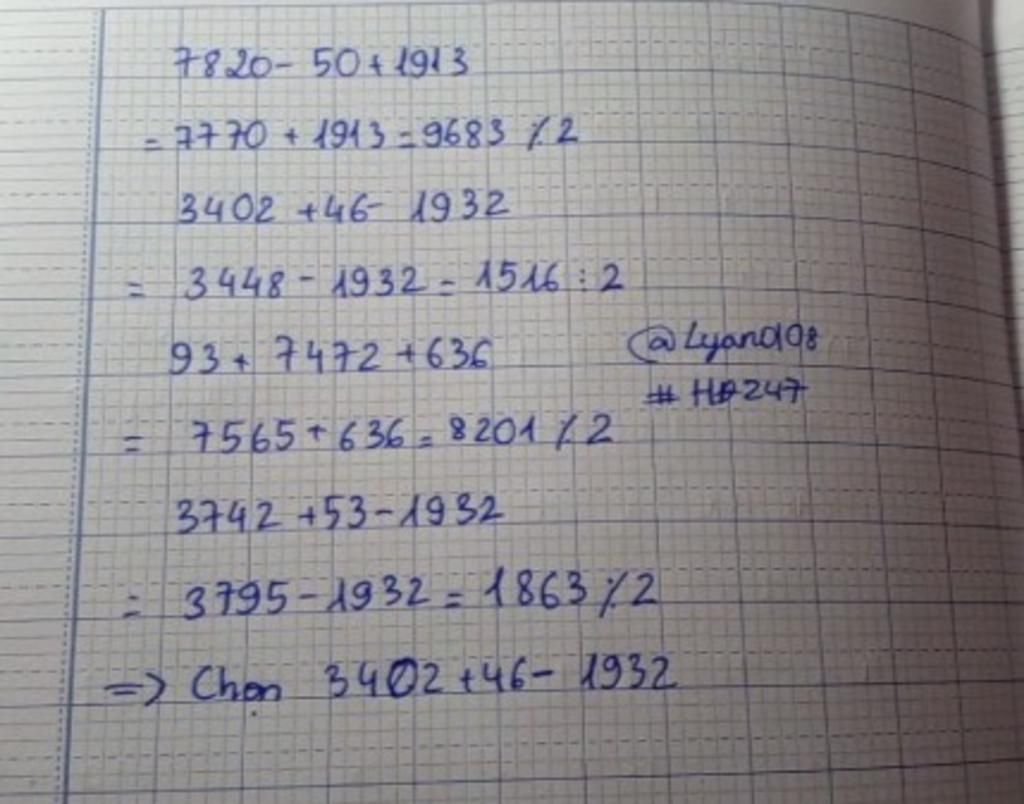 7820 - 50 + 1913
= 7770 + 1913 = 9683 ٪ 2
3402 + 46 - 1932
= 3448 - 1932 = 1516 : 2
93 + 7472 + 636
@Lyand08
# HD247
= 7565 + 636 = 8201 ٪ 2
3742 + 53 - 1932
= 3795 - 1932 = 1863 ٪ 2
=> Chọn 3402 + 46 - 1932